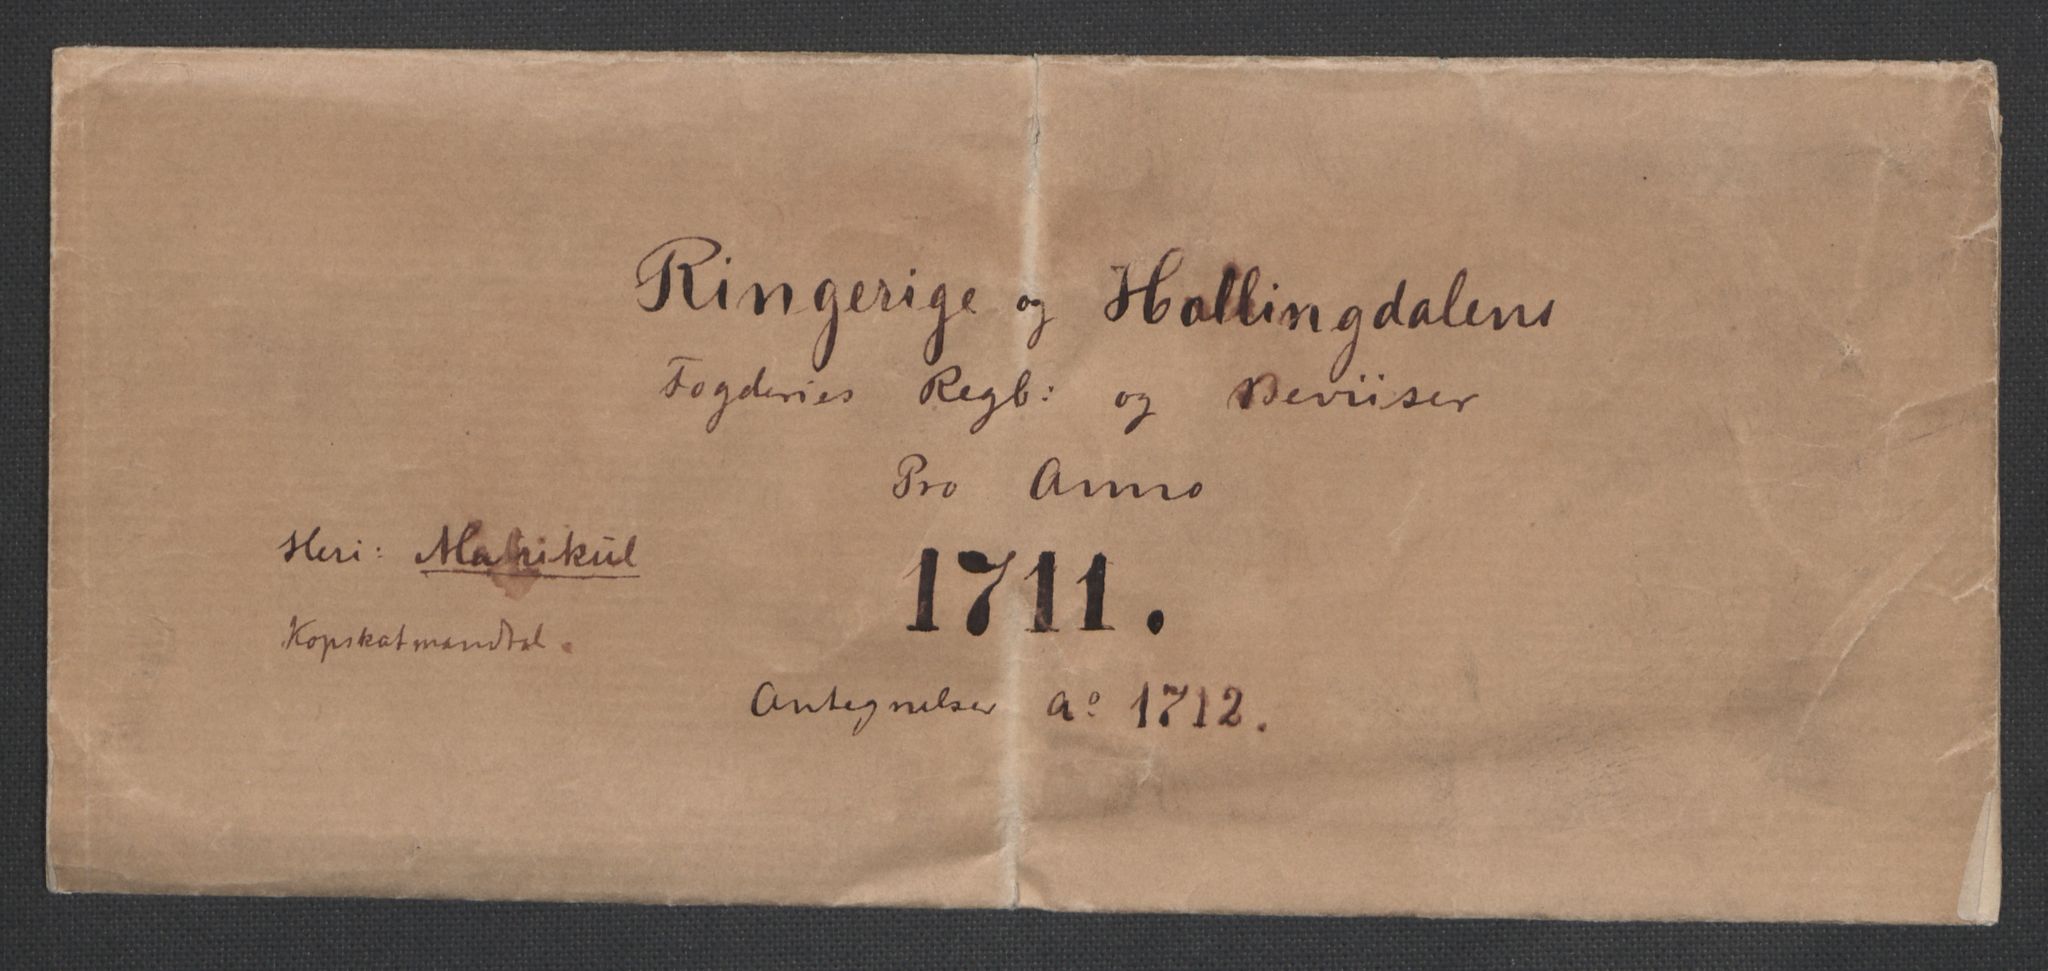 Ringerige og Hallingdalens
Fogderies Regb: og Beviiser
Pro Anno
1711.
Heri: Matrikül
Kopskatmandtal.
Antegnelser aº 1712.